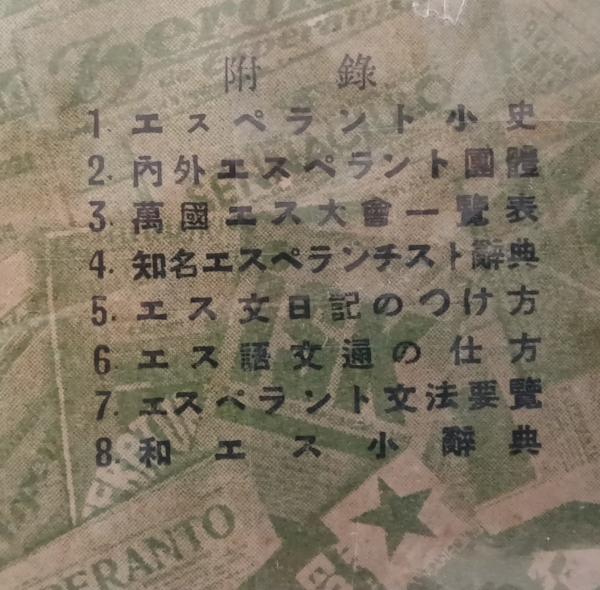 附錄
1. エスペラント小史
2. 內外エスペラント團體
3. 萬國エス大會一覽表
4. 知名エスペランチスト辭典
5. エス文日記のつけ方
6. エス語文通の仕方
7. エスペラント文法要覽
8. 和エス小辭典
PERANTO